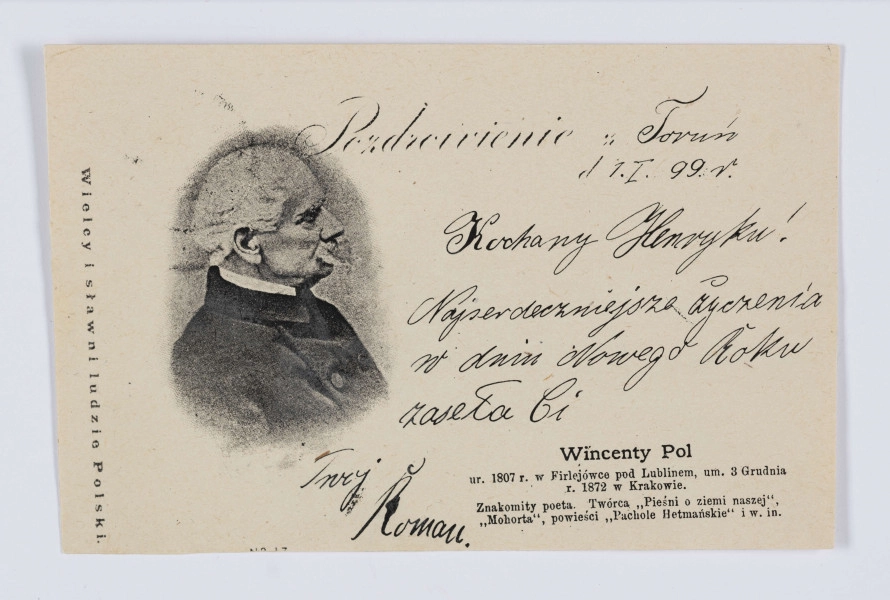 Pozdrowienie z Toruń
d 1.I. 99. r.
Kochany Henryku!
Najserdeczniejsze życzenia
w dniu Nowego Roku
zaseła Ci
Twój
Roman.
Wincenty Pol
ur. 1807 r. w Firlejówce pod Lublinem, um. 3 Grudnia
r. 1872 w Krakowie.
Znakomity poeta. Twórca „Pieśni o ziemi naszej",
„Mohorta", powieści „Pachole Hetmańskie" i w. in.
Wielcy i sławni ludzie Polski.